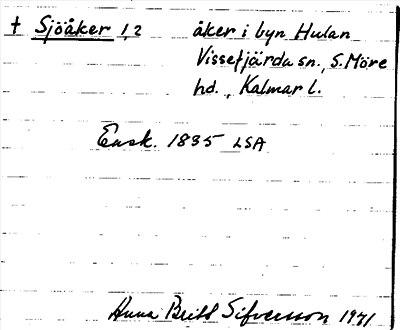 † Sjöåker 1,2 åker i byn Hulan
Vissefjärda sn., S. Möre
hd., Kalmar l.
Ensk. 1835 LSA
Anna Britt Sifversson 1971